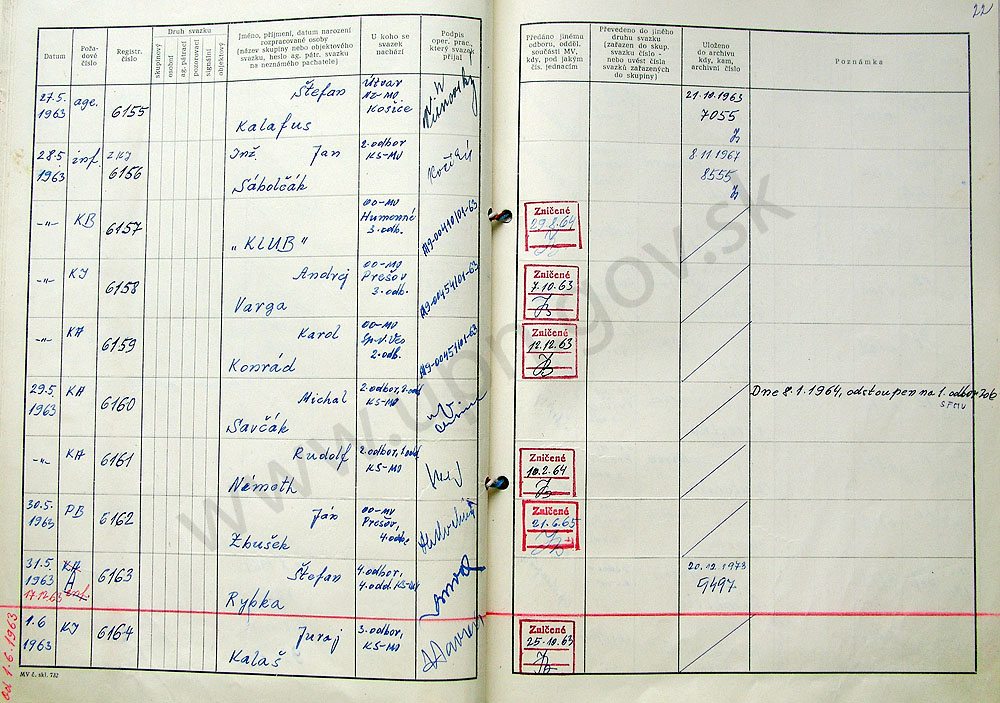 22
Datum
Poža-
dové
číslo
Registr.
číslo
Druh svazku
skupinový
osobní
ag. pátrací
pozorovací
signální
objektový
Jméno, příjmení, datum narození
rozpracované osoby
(název skupiny nebo objektového
svazku, heslo ag. pátr. svazku
na neznámého pachatele)
U koho se
svazek
nachází
Podpis
oper. prac.,
který svazek
přijal
Předáno jinému
odboru, odděl.
součásti MV,
kdy, pod jakým
čís. jednacím
Převedeno do jiného
druhu svazku
(zařazen do skup.
svazku číslo -
nebo uvést čísla
svazků zařazených
do skupiny)
Uloženo
do archivu
kdy, kam,
archivní číslo
Poznámka
27.5.
1963
age.
6155
Štefan
Kalafus
Útvar
VZ-MO
Košice
21.10.1963
7055
28.5
1963
inf.
6156
Inž. Jan
Sábolčák
2.odbor
KS-MV
8.11.1967
8555
-"-
KB
6157
"KLUB"
OO-MV
Humenné
3.odb.
A19-00410/01-63
Zničené
29.8.64
-"-
KI
6158
Andrej
Varga
OO-MV
Prešov
3.odb.
A19-00454/01-63
Zničené
7.10.63
-"-
KA
6159
Karol
Konrád
OO-MV
Sp.N.Ves
2.odb.
A19-00451/01-63
Zničené
12.12.63
29.5.
1963
KA
6160
Michal
Savčák
2.odbor,
KS-MV
Dne 8.1.1964, odstoupen na 1.odbor
-"-
KA
6161
Rudolf
Németh
2.odbor,
KS-MV
Zničené
10.2.64
30.5.
1963
PB
6162
Ján
Zbušek
OO-MV
Prešov,
4.odb.
Zničené
21.6.65
31.5.
1963
17.12.63
KA
A
inf.
6163
Štefan
Rybka
4.odbor,
4.odd. KS-MV
20.12.1973
9497
1.6
1963
KI
6164
Juraj
Kalaš
3.odbor,
KS-MV
Zničené
25.10.63
od 1.6.1963
MV č. skl. 732
www.upn.gov.sk